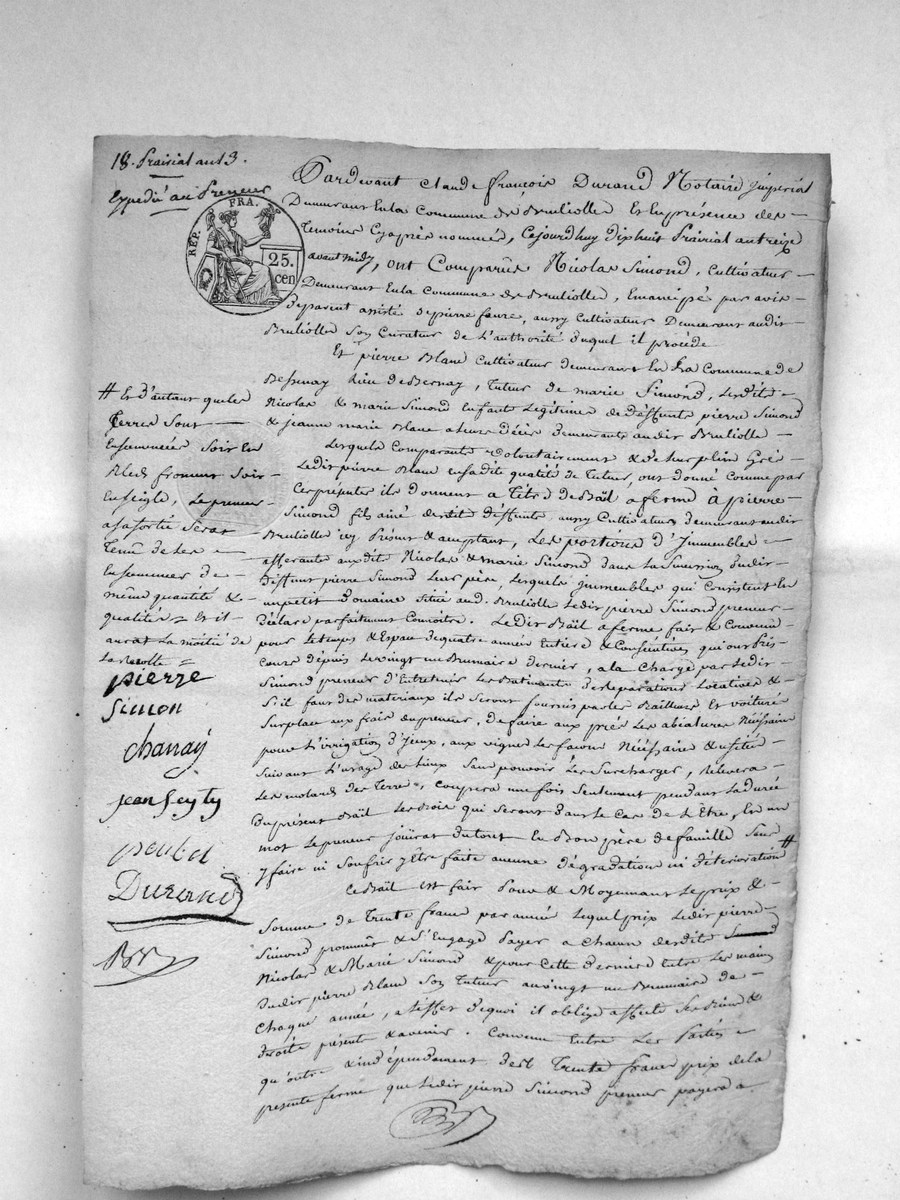 18. Prairial an 13.
Expedié au Preneur
REP. FRA.
25.
cen
Pardevant Claude françois Durand Notaire Imperial
Demeurant En la Commune de Brulliolle Et En présence des
Temoins Cy après nommés, Cejourdhuy dixhuit Prairial an treize
avant midy, ont Comparûs Nicolas Simond, Cultivateur
Demeurant En la Commune de Brulliolle, Emancipé par avis
de parent assisté de pierre faure, aussy Cultivateur Demeurant audit
Brulliolle Son Curateur de L'authorité duquel il procède
Et pierre Blanc Cultivateur demeurant En la Commune de
Bessenay Lieu de Bernay, Tuteur de marie Simond, Lesdits
Nicolas & marie Simond enfants Legitimes de deffunts pierre Simond
& jeanne marie Blanc a Leurs décès Demeurants audit Brulliolle
Lesquels Comparants Volontairement & de Leur plein Gré
Ledit pierre Blanc en Sadite qualité de Tuteur, ont donné Comme par
Ces présentes ils donnent a Titre de Bail a ferme à pierre
Simond fils aîné dudit deffunt, aussy Cultivateur demeurant audit
Brulliolle icy Présent & acceptant, Les portions d'Immeubles
afferante auxdits Nicolas & marie Simond dans La Succession dudit
deffunt pierre Simond Leur père, Lesquels Immeubles qui Consistent En
un petit Domaine Situé aud. Brulliolle Ledit pierre Simond preneur
Déclare parfaitement Connoitre. Ledit Bail a ferme fait & Convenu
pour Le temps & Espace de quatre année Entiere & Consécutives qui ont Pris
Cours depuis Le vingt un Brumaire dernier, a la Charge par Ledit
Simond preneur d'Entretenir Les Batiments de Reparations Locatives &
S'il faut des materiaux ils Seront fournis par les Bailleurs Et voiturés
Surplace aux frais du preneur, de faire aux prés Les abiatures Néçessaire
pour L'irrigation d'Iceux, aux vignes Les façons Néçessaire & usitée
Suivant L'usage des Lieux Sans pouvoir Les Surcharger, relevera
Les molards des Terres, Coupera une fois Seulement pendant La durée
du présent Bail Les Bois qui Seront dans le Cas de L'Etre, En un
mot Le preneur Joüira du tout En Bon père de famille Sans
y faire ni Souffrir y Etre faite aucune dégradation ni déterioration #
Ce Bail est fait Pour & Moyennant Le prix &
Somme de Trente francs par année Lequel prix Ledit pierre
Simond promet & S'Engage Payer a Chacun desdits
Nicolas & Marie Simond & pour Cette Derniere Entre Les mains
Dudit pierre Blanc Son Tuteur au vingt un Brumaire de
Chaque année, a L'Effet de quoi il oblige affecte Ses Biens &
droits présents & avenir. Convenu Entre Les Parties
qu'outre & indépendament desd. Trente francs prix de la
présente ferme que Ledit pierre Simond preneur payera a
# Et d'autant que les
Terres Sont
Ensemencées Soit En
Bled froment Soit
En Seigle, Le preneur
a Sa sortie Sera
Tenu de Les
Ensemencer de
même quantité &
qualité, Et il
aura La moitié de
La Recolte
pierre
Simon
Chanay
jean Seyty
Durand